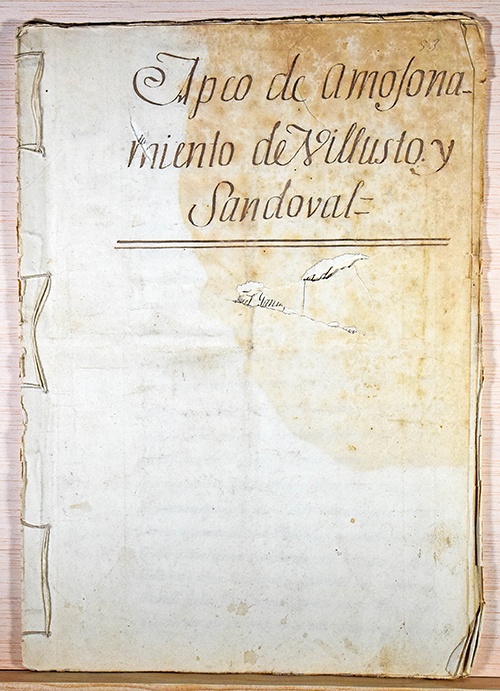 53.
Apeo de amojona-
miento de Villusto y
Sandoval=